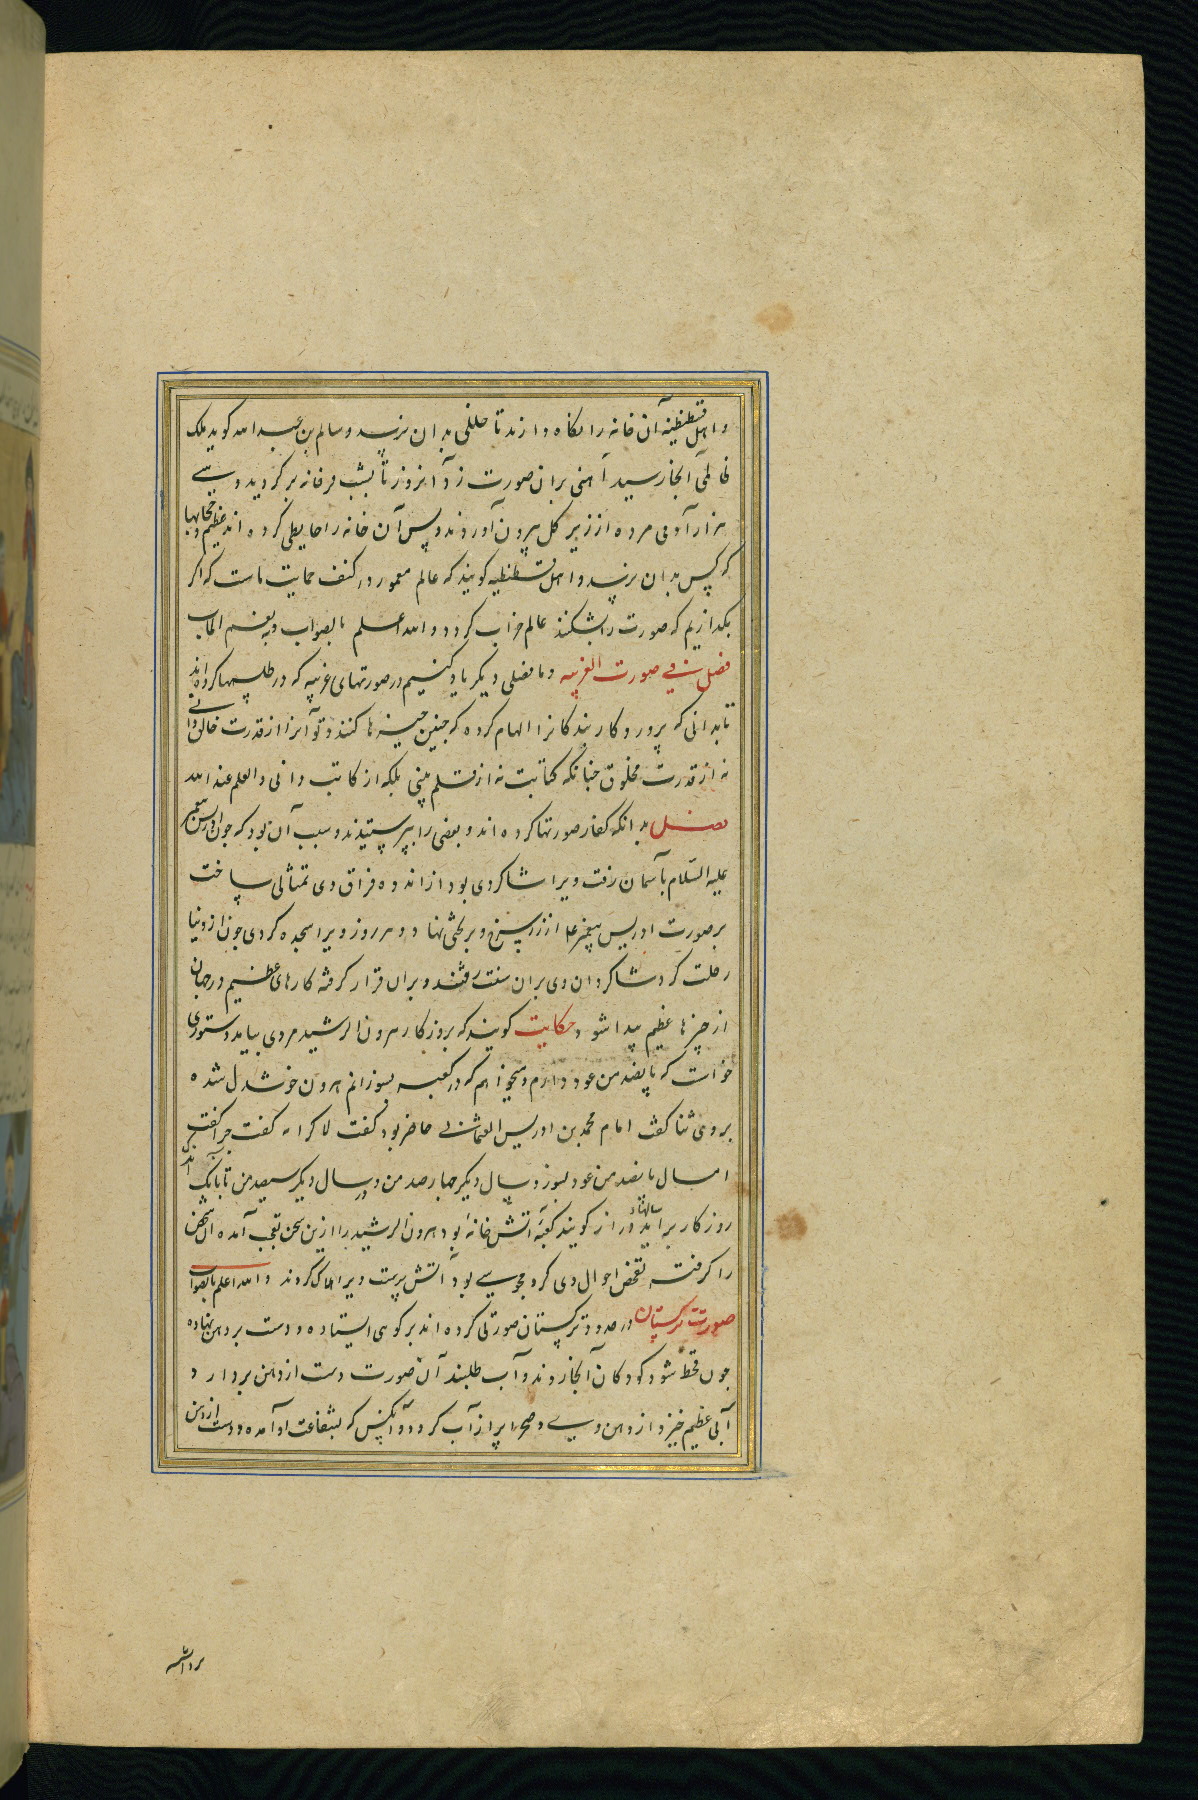 و اهل قسطنطنیه آن خانه را نکاه دارند تا خللی بدان نرسد و سالم بن عبد الله کوید ملک
ظالمی آنجا رسید آهنی بران صورت زد آنروز تا بشب مرغان بر کردید و سی
هزار آدمی مرده از زیر کل بیرون آوردند و پس آن خانه را حایطی کرده اند عظیم و حجابها
که کس بدان نرسد و اهل قسطنطنیه کویند که عالم معمور در کنف حمایت ماست که اکر
بکذاریم که صورت را بشکنند عالم خراب کردد و الله اعلم بالصواب
فصل فی صورت الغریبه و ما فصلی دیکر یاد کنیم در صورتهای غریبه که در طلسمها کرده اند
تا بدانی که پروردکار بندکانرا الهام کرده که چنین چیزها کنند و تو آنرا از قدرت خالق دانی
نه از قدرت مخلوق چنانکه کتابت نه از قلم بینی بلکه از کاتب دانی و العلم عند الله
فصل بدانکه کفار صورتها کرده اند و بعضی را بپرستیدند و سبب آن بود که چون ادریس پیغمبر
علیه السلام بآسمان رفت ویرا شاکردی بود از اندوه فراق وی تمثالی ساخت
بر صورت ادریس پیغمبر ع از زر سرخ و بر تختی نهاد و هر روز ویرا سجده کردی چون از دنیا
رحلت کرد شاکردان وی بران سنت رفتند و بران قرار کرفته کارهای عظیم در جهان
از چیزها عظیم پیدا شود حکایت کویند که بروزکار هرون الرشید مردی بیامد دستوری
خواست که پانصد من عود دارم میخواهم که در کعبه بسوزانم هرون خوشدل شده
بر وی ثنا کفت امام محمد بن ادریس حاضر بود کفت لا کرامه کفت چرا کفت
امسال پانصد من عود بسوزد سال دیکر چهارصد من و در سال دیکر سیصد من تا باندک
روزکار برآید سالهاء دراز کویند کعبه آتش خانه بود هرون الرشید را ازین سخن تعجب آمده آن شخص
را کرفته تفحص احوال وی کرد مجوسی بود آتش پرست ویرا هلاک کردند و الله اعلم بالصواب
صورت ترکستان در حدود ترکستان صورتی کرده اند بر کوهی ایستاده و دست بر دهن نهاده
چون قحط شود کودکان آنجا روند و آب طلبند آن صورت دست از دهن بردارد
آبی عظیم خیزد از دهن وی و صحرا پر از آب کردد و آنکس که بشفاعت او آمده و دست از دهن
برداشته